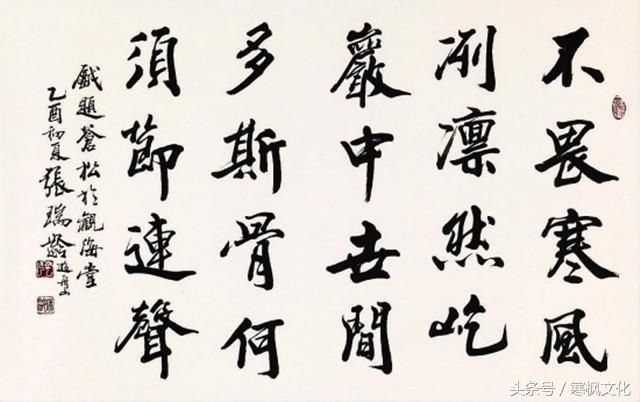 不畏寒風
冽凛然屹
巖中世間
多斯骨何
須節連聲
戲題蒼松於觀海堂
乙酉初夏張瑞齡
头条号 / 寒枫文化